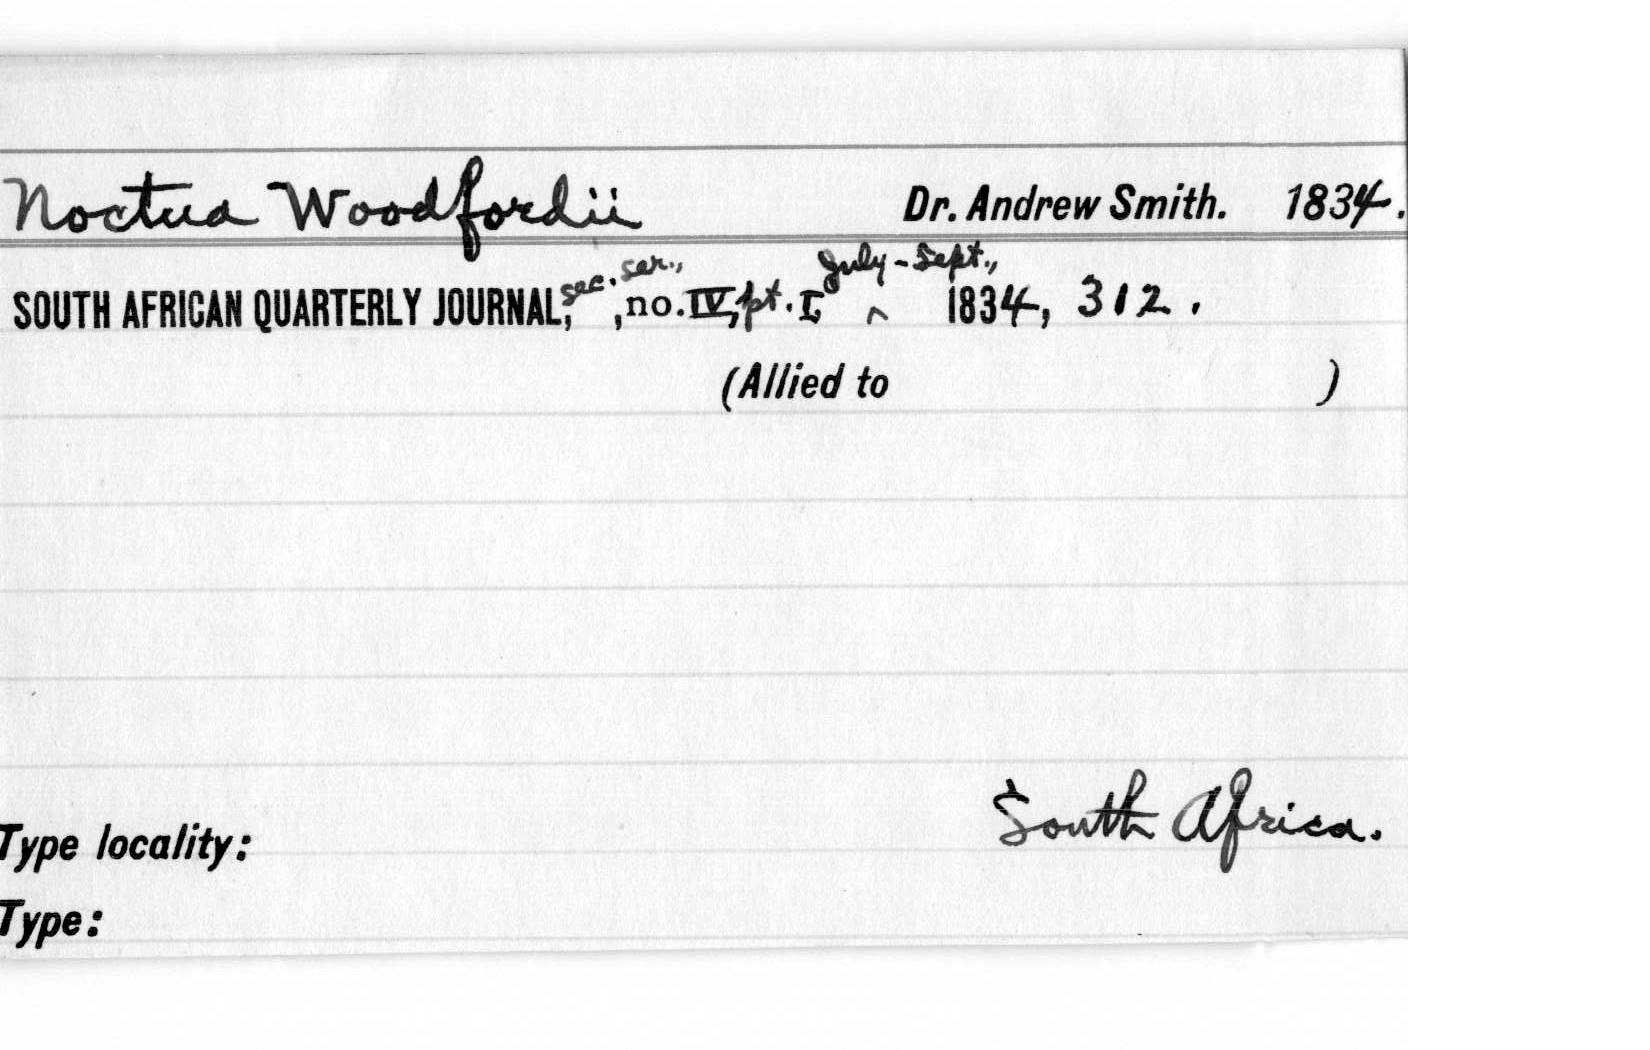 Noctua Woodfordii Dr. Andrew Smith. 1834.
SOUTH AFRICAN QUARTERLY JOURNAL, sec. ser., ,no. IV, pt. I, July-Sept., ^ 1834, 312.
(Allied to )
Type locality: South Africa.
Type: